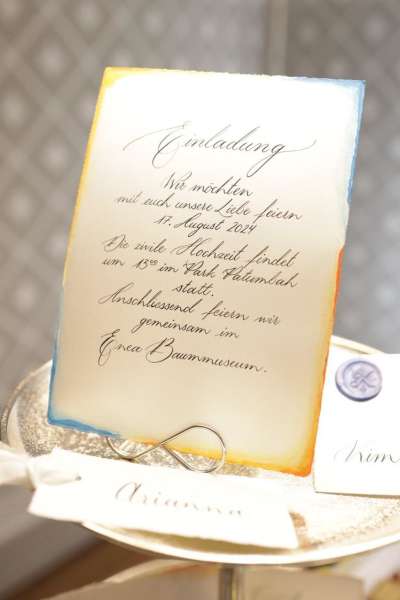 Einladung
Wir möchten
mit euch unsere Liebe feiern
17. August 2024
Die zivile Hochzeit findet
um 15⁰⁰ im Park Patumbah
statt.
Anschliessend feiern wir
gemeinsam im
Enea Baummuseum.
Kim
Arianna